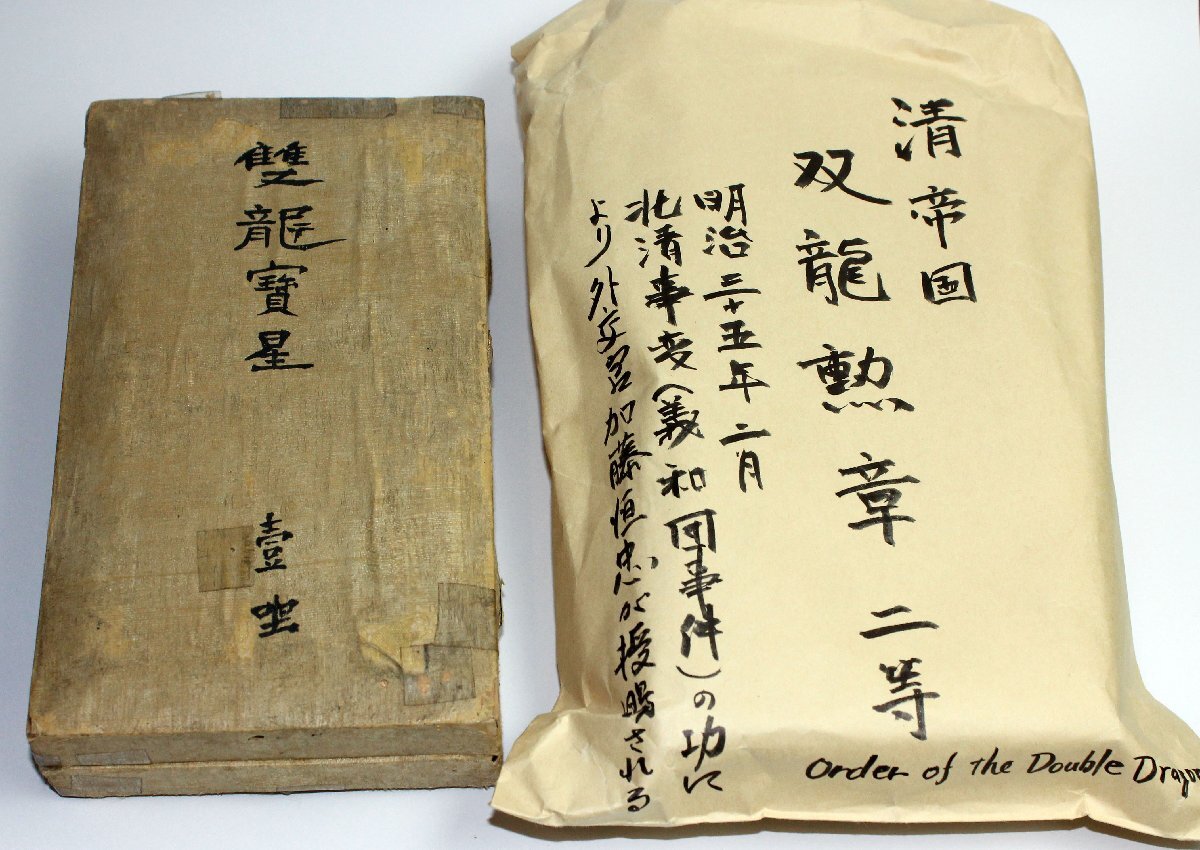 雙龍寶星
壹
清帝国
双龍勲章 二等
明治三十五年二月
北清事変(義和団事件)の功に
より外交官加藤恒忠が授賜される
Order of the Double Dragon